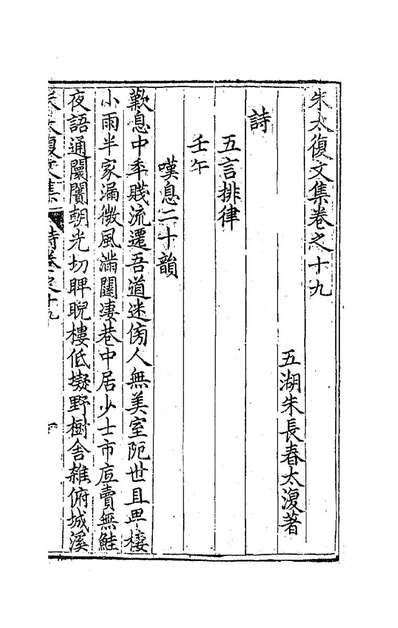 朱太復文集卷之十九
五湖朱長春太復著
詩
五言排律
壬午
嘆息二十韻
歎息中年賤流遷吾道迷傍人無美室阨世且卑棲
小雨半家漏微風滿閨淒巷中居少士市底賣無鮭
夜語通闤闠朝光切睥睨樓低凝野樹舍雜俯城溪
朱太復文集 詩卷之十九